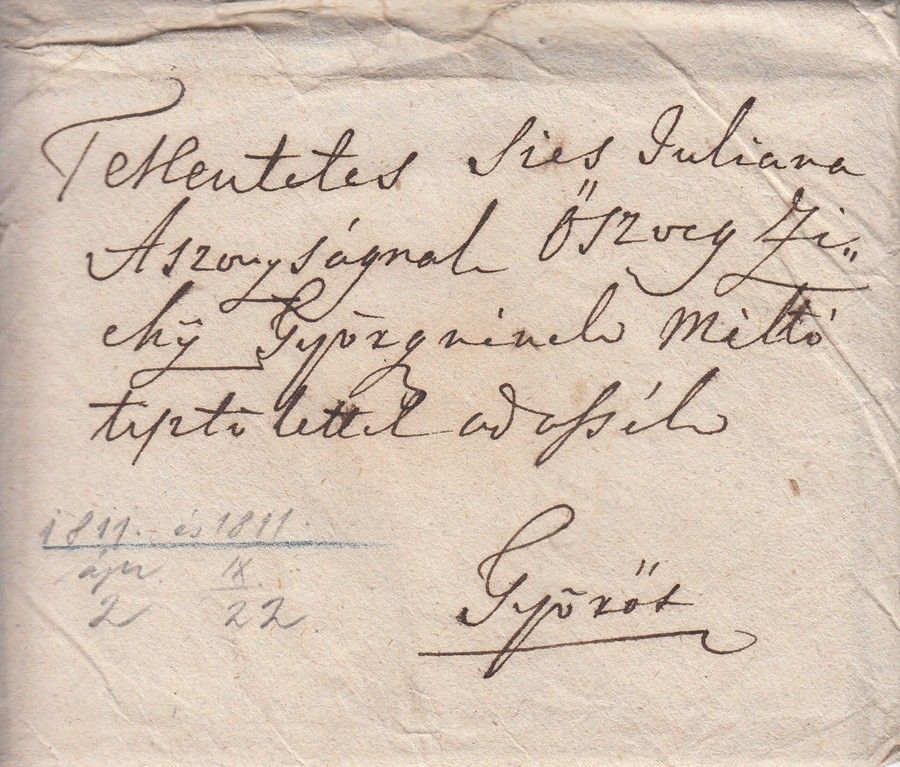 Tekentetes Sies Juliana
Aszonyságnak Őszveg Zi„
chÿ Györgnének méltó
tisztelettel adassék
Győrött
1811. és 1811.
ápr. IX.
2 22